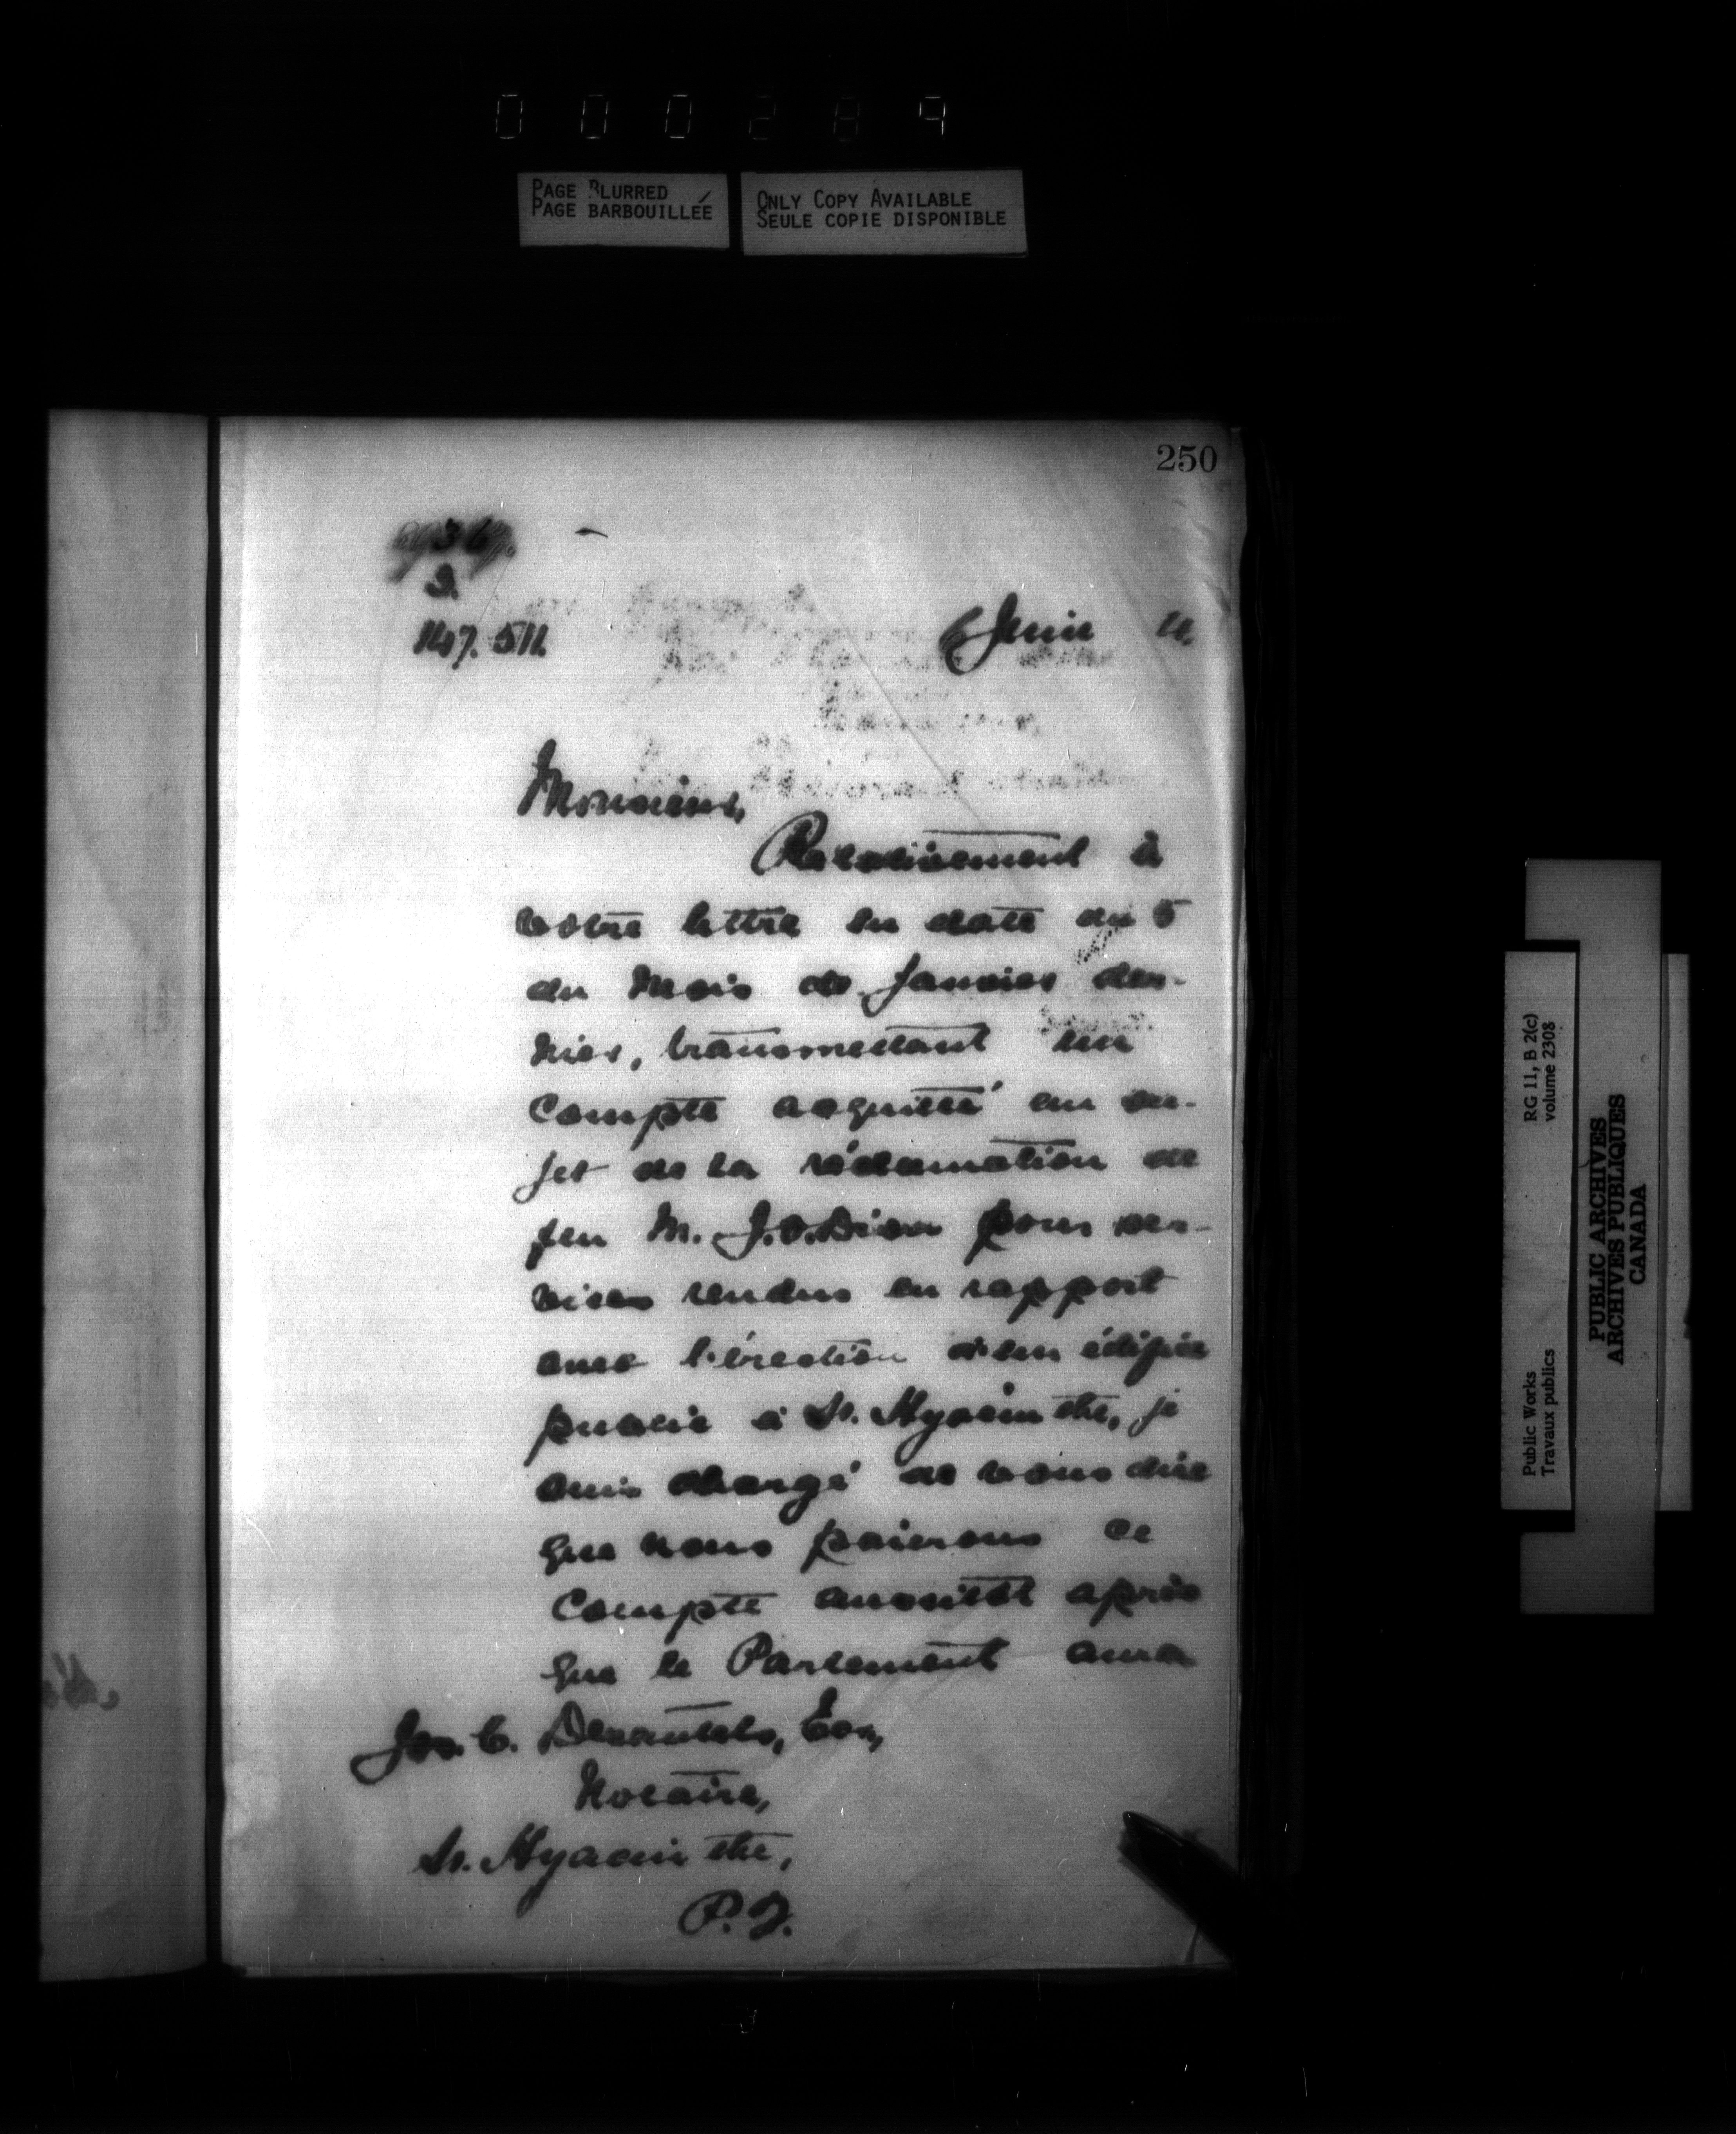 000289
PAGE BLURRED
PAGE BARBOUILLÉE
ONLY COPY AVAILABLE
SEULE COPIE DISPONIBLE
250
3.
147. 511.
6 Juin
Monsieur,
Relativement à
votre lettre en date du 5
du mois de Janvier der-
nier, transmettant un
compte acquitté au su-
jet de la réclamation de
feu M. J.O. Dion pour ser-
vices rendus en rapport
avec l'érection d'un édifice
public à St. Hyacinthe, je
suis chargé de vous dire
que nous paierons ce
compte aussitôt après
que le Parlement aura
Jos. C. Desautels, Ecr.,
Notaire,
St. Hyacinthe,
P.Q.
Public Works
Travaux publics
RG 11, B 2(c)
volume 2308
PUBLIC ARCHIVES
ARCHIVES PUBLIQUES
CANADA